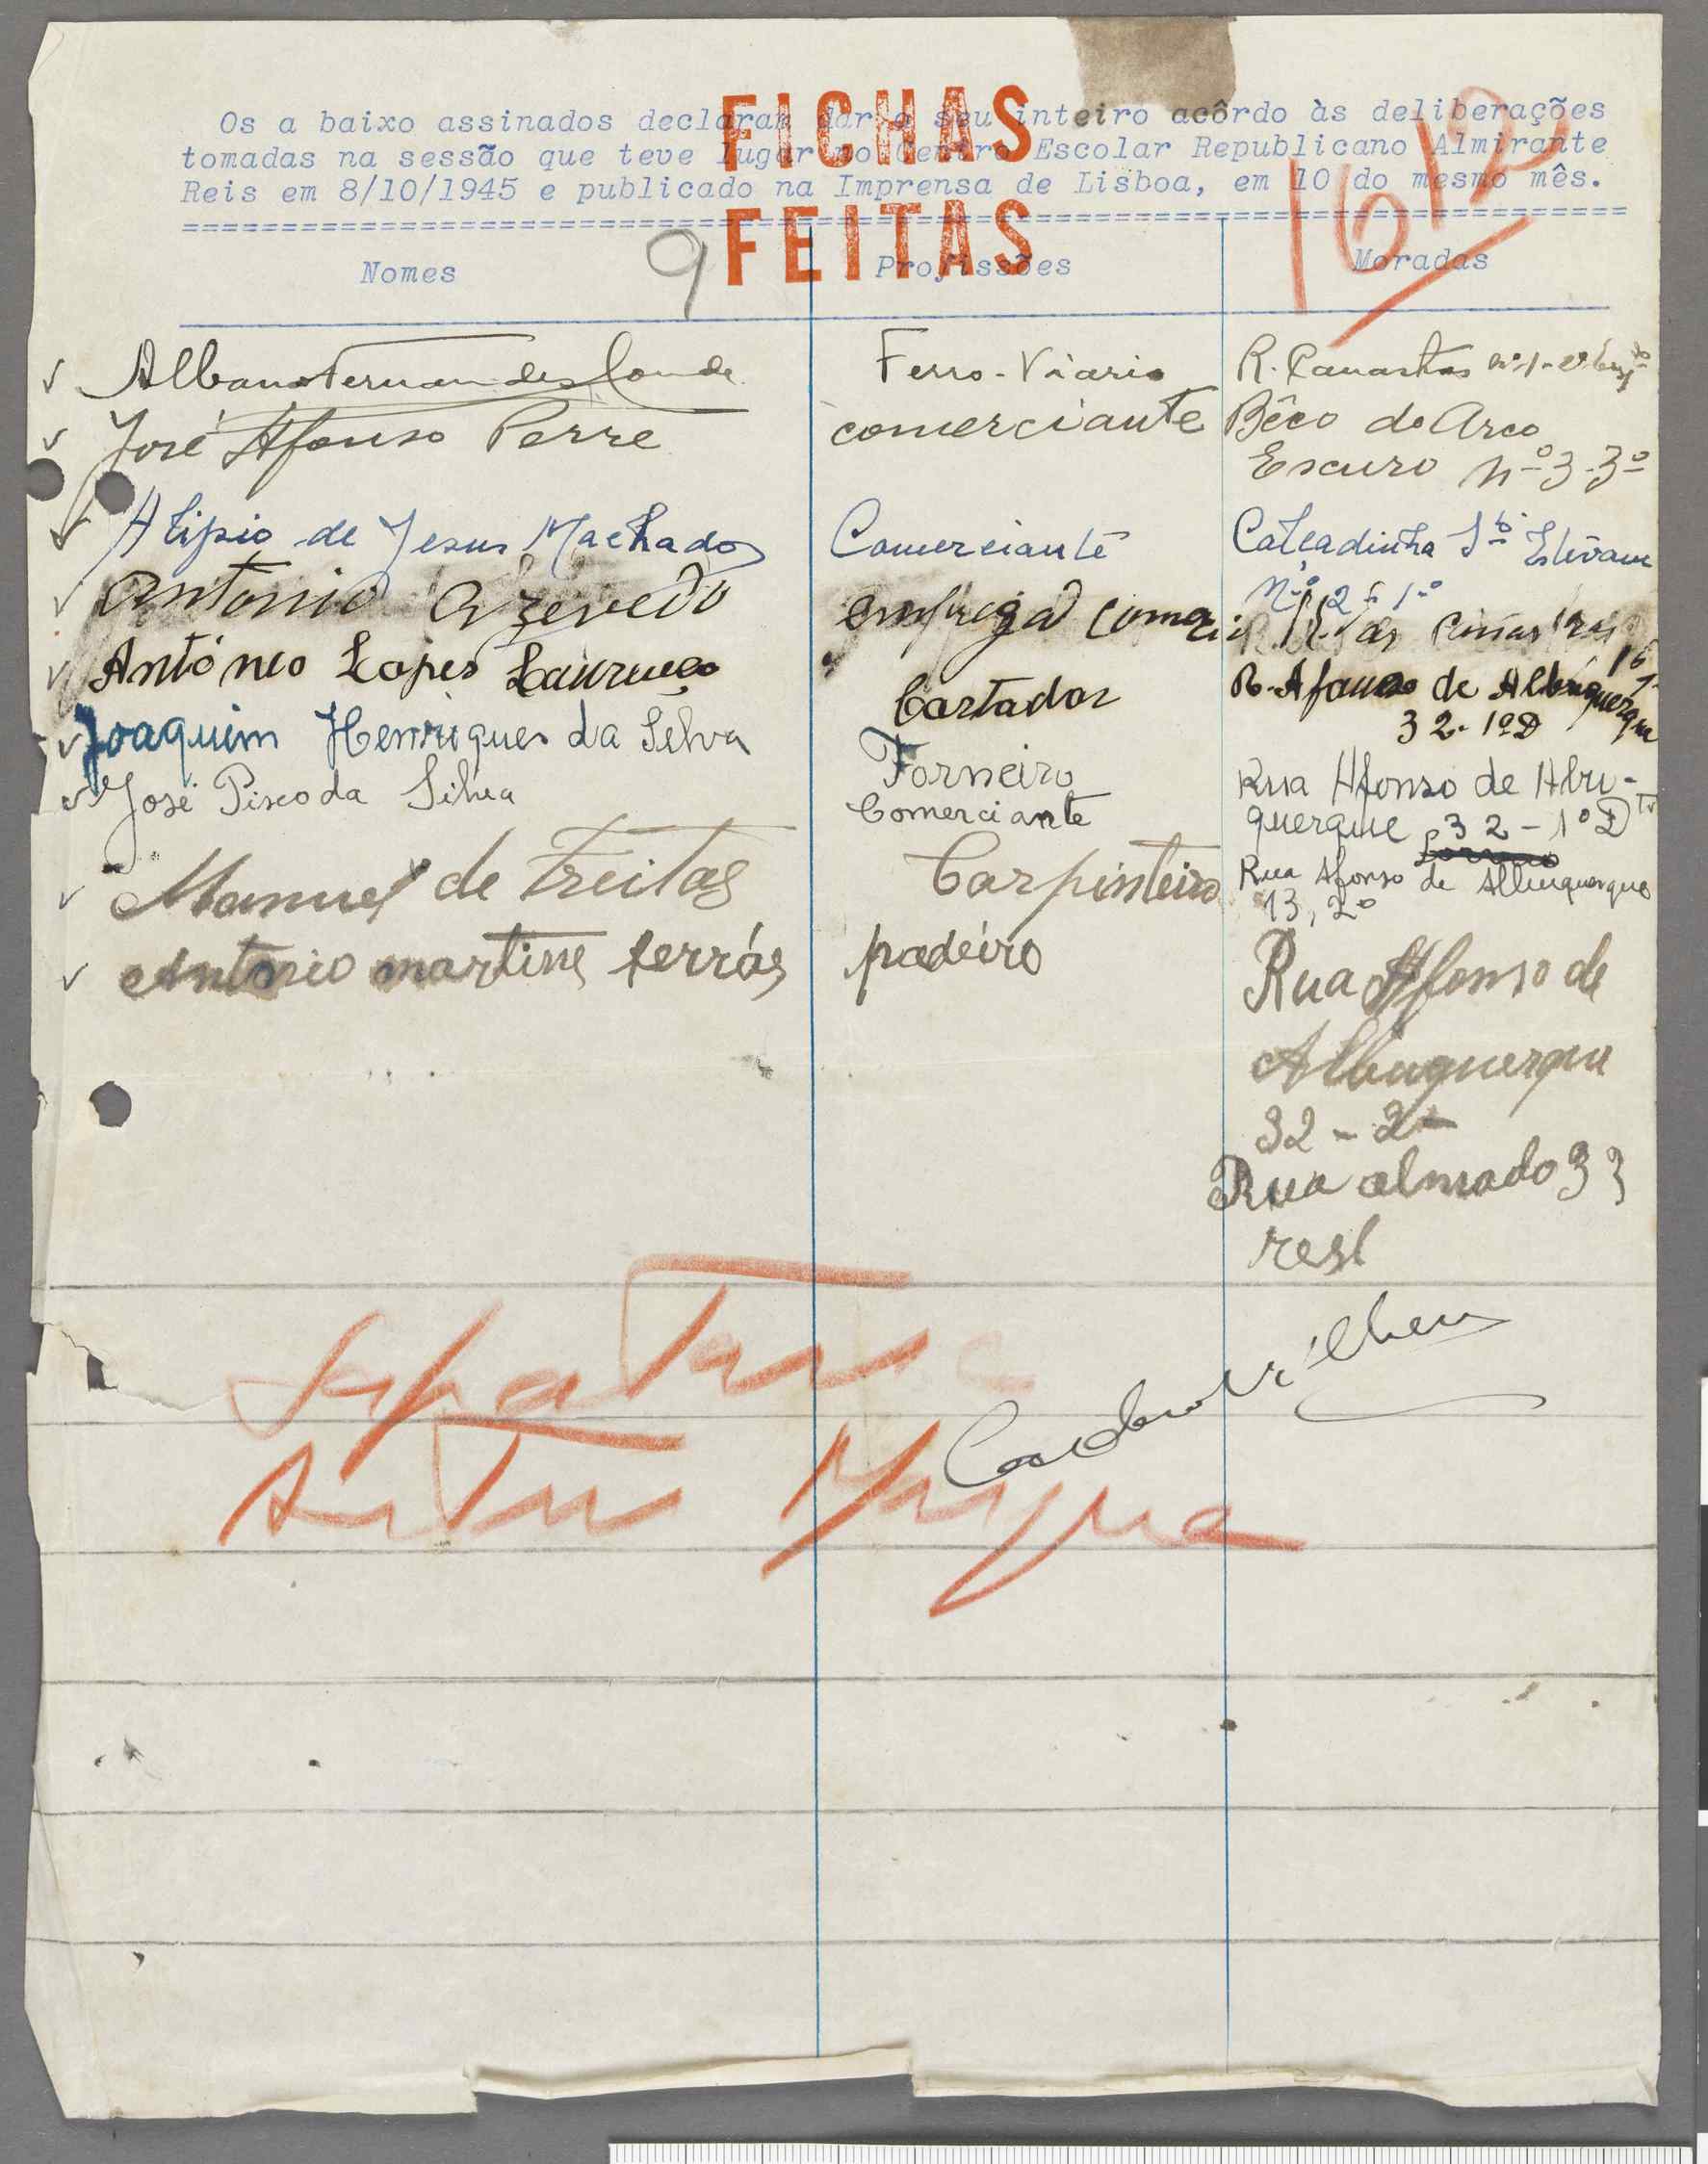 Os a baixo assinados declaram dar o seu inteiro acôrdo às deliberações
tomadas na sessão que teve lugar no Centro Escolar Republicano Almirante
Reis em 8/10/1945 e publicado na Imprensa de Lisboa, em 10 do mesmo mês.
FICHAS
FEITAS
9
Nomes Profissões Moradas
Albano Fernandes Conde Ferro-Viario R. Canastras nº 1-
José Afonso Perre comerciante Bêco do Arco
Escuro nº 3-3º
Alipio de Jesus Machado Comerciante Calçadinha Stº Estêvam
Nº 2-1º
Antonio Azevedo R. das
António Lopes Lourenço Cortador R. Afonso de Albuquerque
32-1ºD
Joaquim Henriques da Selva Forneiro Rua Afonso de Albu-
querque 32-1º D
José Pisco da Silva Comerciante Rua Afonso de Albuquerque
13, 2º
Manuel de Freitas Carpinteiro Rua Afonso de
Albuquerque
32-2º
Antonio martins ferrás padeiro Rua almada 33
resl
Artur